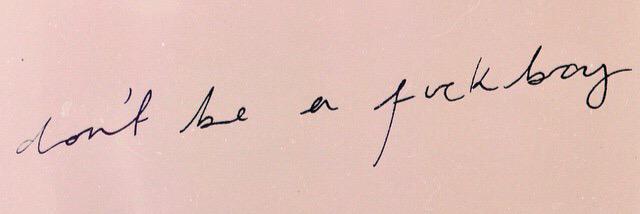 don't be a fuckboy